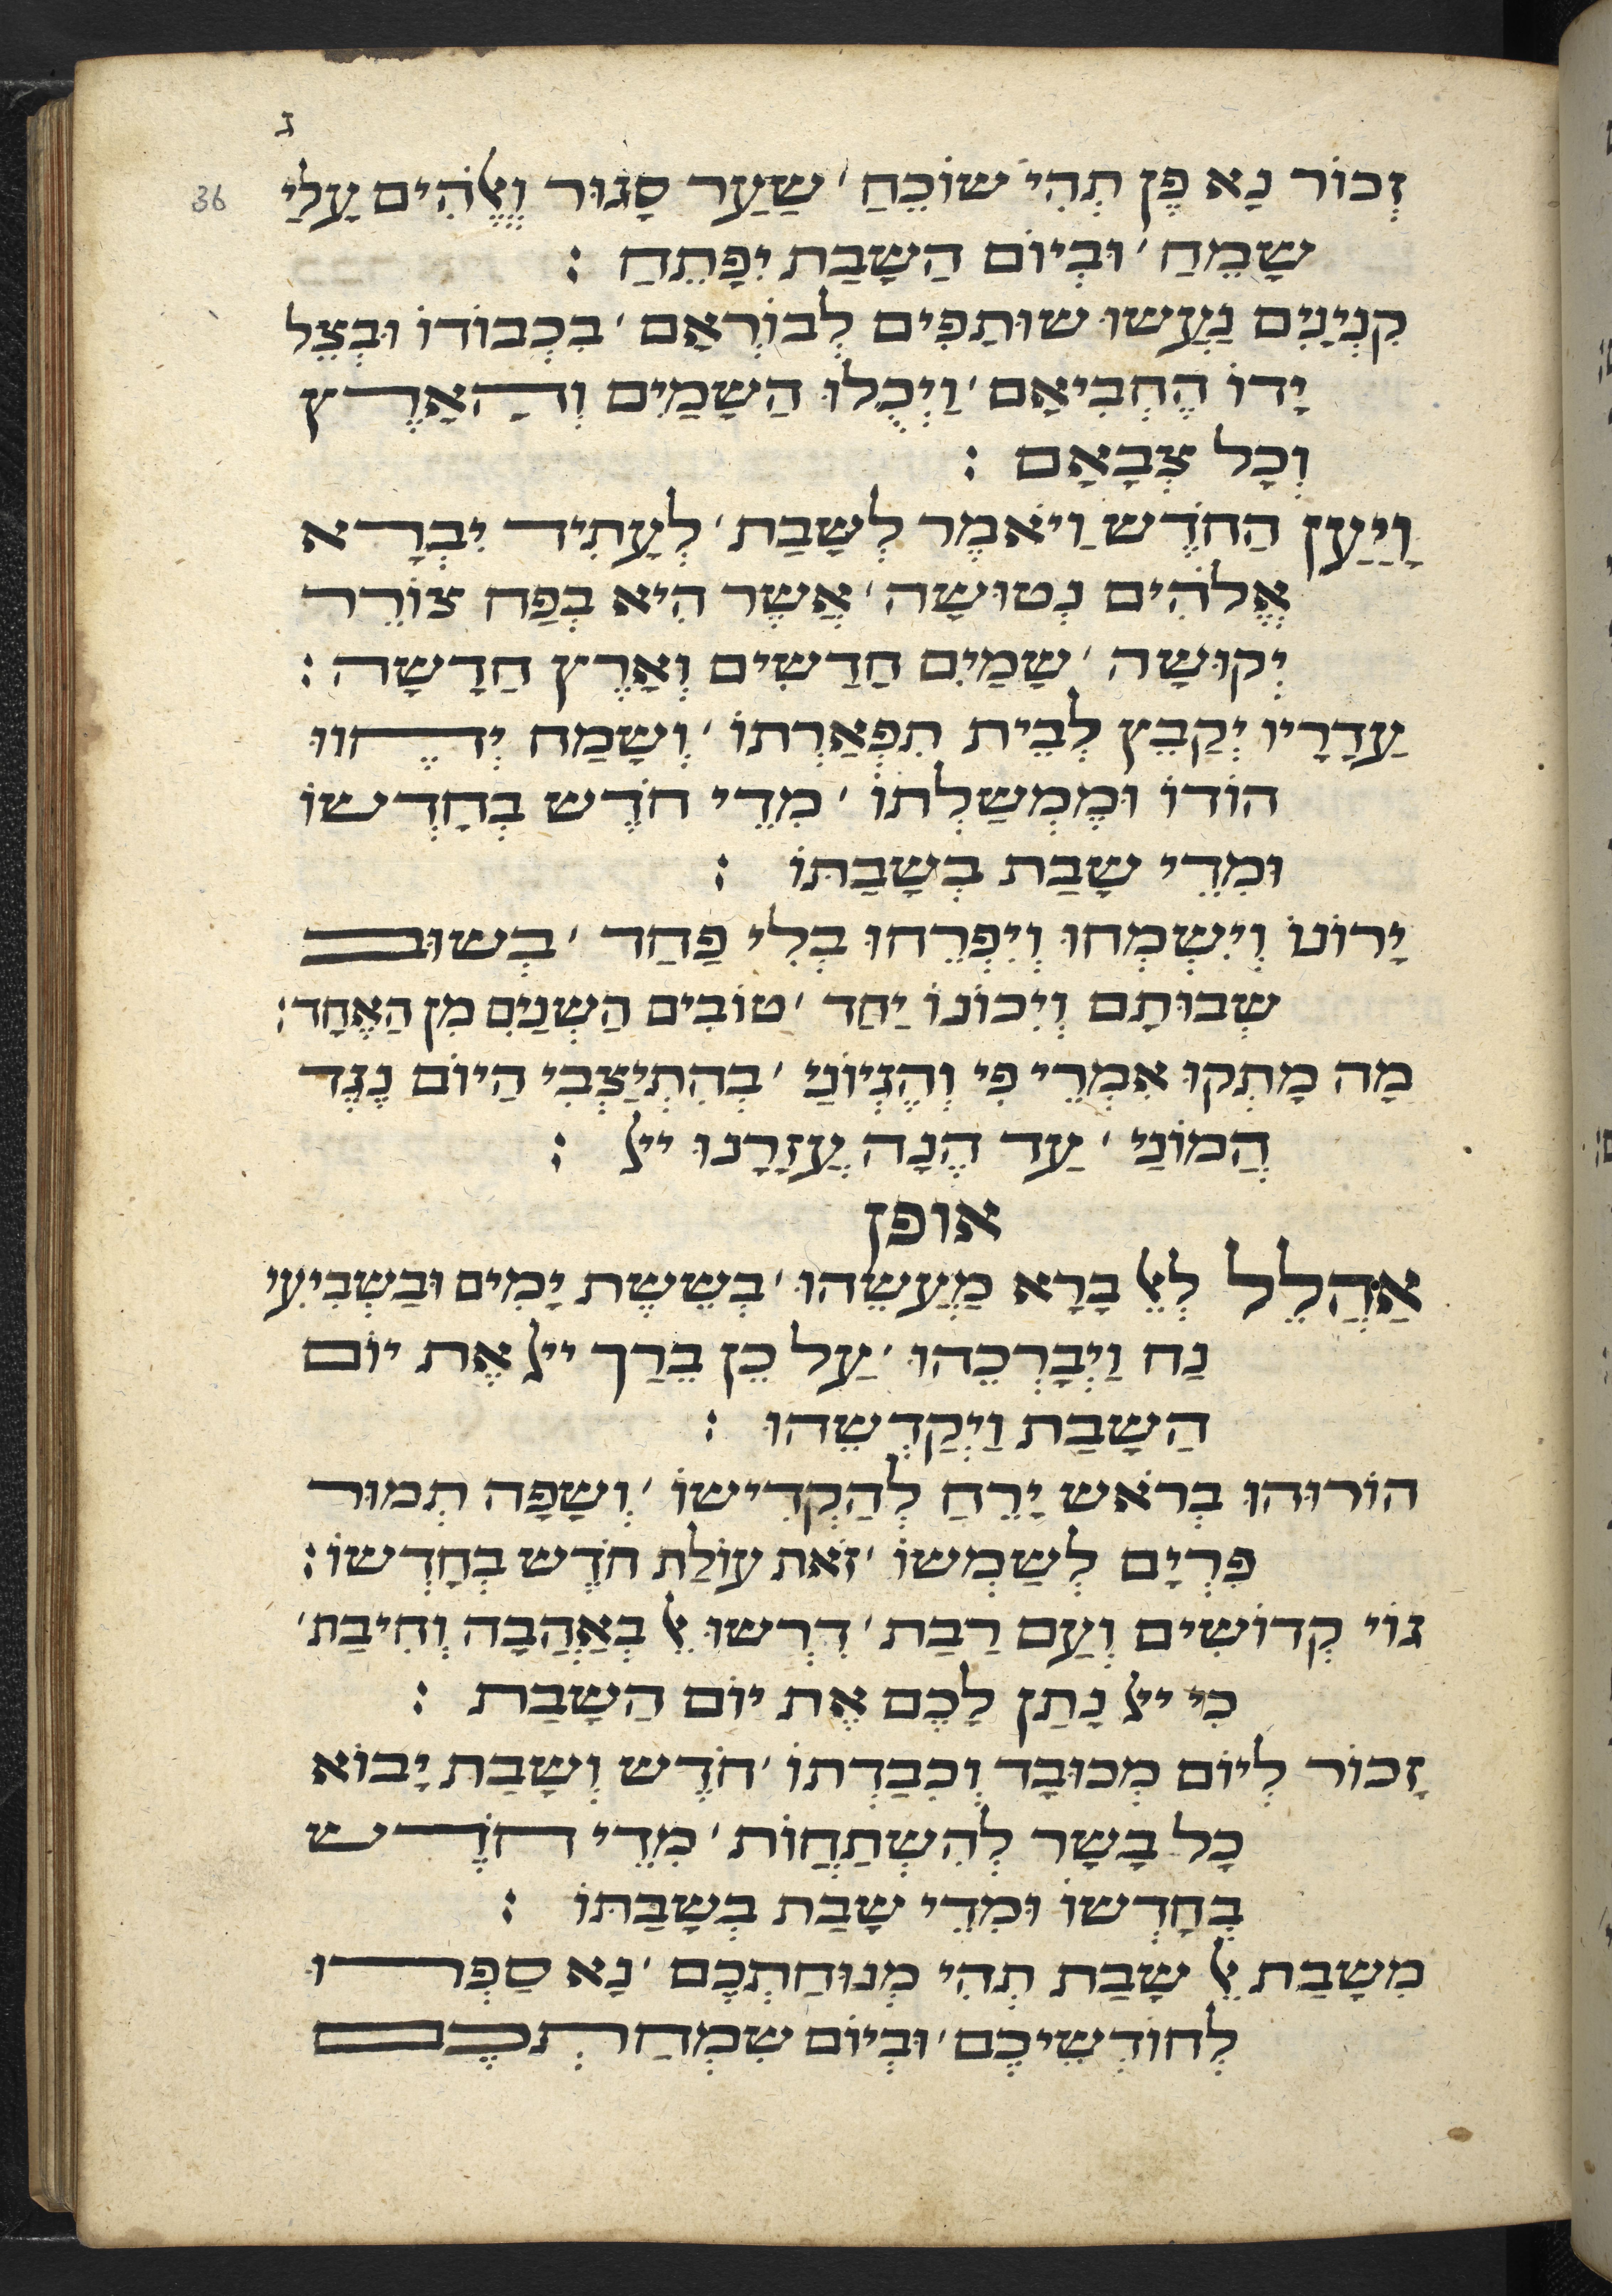 ג
36
זְכוֹר נָא פֶן תְהִי שׁוֹכֵחַ׳ שַׁעַר סָגוּר וֶאֱלֹהִים עָלַי
שָׂמֵחַ׳ וּבְיוֹם הַשָבַת יִפָתֵחַ :
קִנְיָנִים נַעֲשׂוּ שׁוּתָפִים לְבוֹרְאָם׳ בִכְבוֹדוֹ וּבְצֵל
יָדוֹ הֶחְבִיאָם׳ וַיְכֻלוּ הַשָמַיִם וְהָאָרֶץ
וְכָל צְבָאָם :
וַיַעַן הַחֹדֶשׁ וַיֹאמֶר לְשָבַת׳ לְעָתִיד יִבְרָא
אֱלֹהִים נְטוּשָה׳ אֲשֶר הִיא בְפַח צוֹרֵר
יְקוּשָה׳ שָמַיִם חֲדָשִים וְאָרֶץ חֲדָשָה :
עֲדָרָיו יְקַבֵץ לְבֵית תִפְאַרְתוֹ׳ וְשָמַח יְחֱווּ
הוֹדוֹ וּמֶמְשַלְתוֹ׳ מִדֵי חֹדֶש בְחָדְשוֹ
וּמִדֵי שָבַת בְשָבַתוֹ :
יָרוֹנוּ וְיִשְמְחוּ וְיִפְרְחוּ בְלִי פַחַד׳ בְשוּב
שְבוּתָם וְיִכוֹנוּ יַחַד׳ טוֹבִים הַשְנַיִם מִן הָאֶחָד :
מַה מָתְקוּ אִמְרֵי פִי וְהֶגְיוֹנַי׳ בְהִתְיַצְבִי הַיוֹם נֶגֶד
הֲמוֹנַי׳ עַד הֵנָה עֲזָרָנוּ ייי :
אופן
אֲהַלֵל לְאֵל בָרָא מַעֲשֵהוּ׳ בְשֵשֶת יָמִים וּבַשְבִיעִי
נַח וַיְבָרְכֵהוּ׳ עַל כֵן בֵרַך ייי אֶת יוֹם
הַשָבַת וַיְקַדְשֵהוּ :
הוֹרוּהוּ בְרֹאש יָרֵחַ לְהַקְדִישוֹ׳ וְשָפָה תְמוּר
פָרִים לְשַמְשוֹ׳ זֹאת עוֹלַת חֹדֶש בְחָדְשוֹ :
גוֹי קְדוֹשִים וְעַם רַבַת׳ דִרְשוּ אֵל בְאַהֲבָה וְחִיבַת׳
כִי ייי נָתַן לָכֶם אֶת יוֹם הַשָבַת :
זָכוֹר לְיוֹם מְכוּבָד וְכִבַדְתוֹ׳ חֹדֶש וְשָבַת יָבוֹא
כָל בָשָר לְהִשְתַחֲוֹת׳ מִדֵי חֹדֶש
בְחָדְשוֹ וּמִדֵי שָבַת בְשָבַתוֹ :
מִשָבַת אֶל שָבַת תְהִי מְנוּחַתְכֶם׳ נָא סַפְרוּ
לְחוֹדְשֵיכֶם׳ וּבְיוֹם שִמְחַתְכֶם